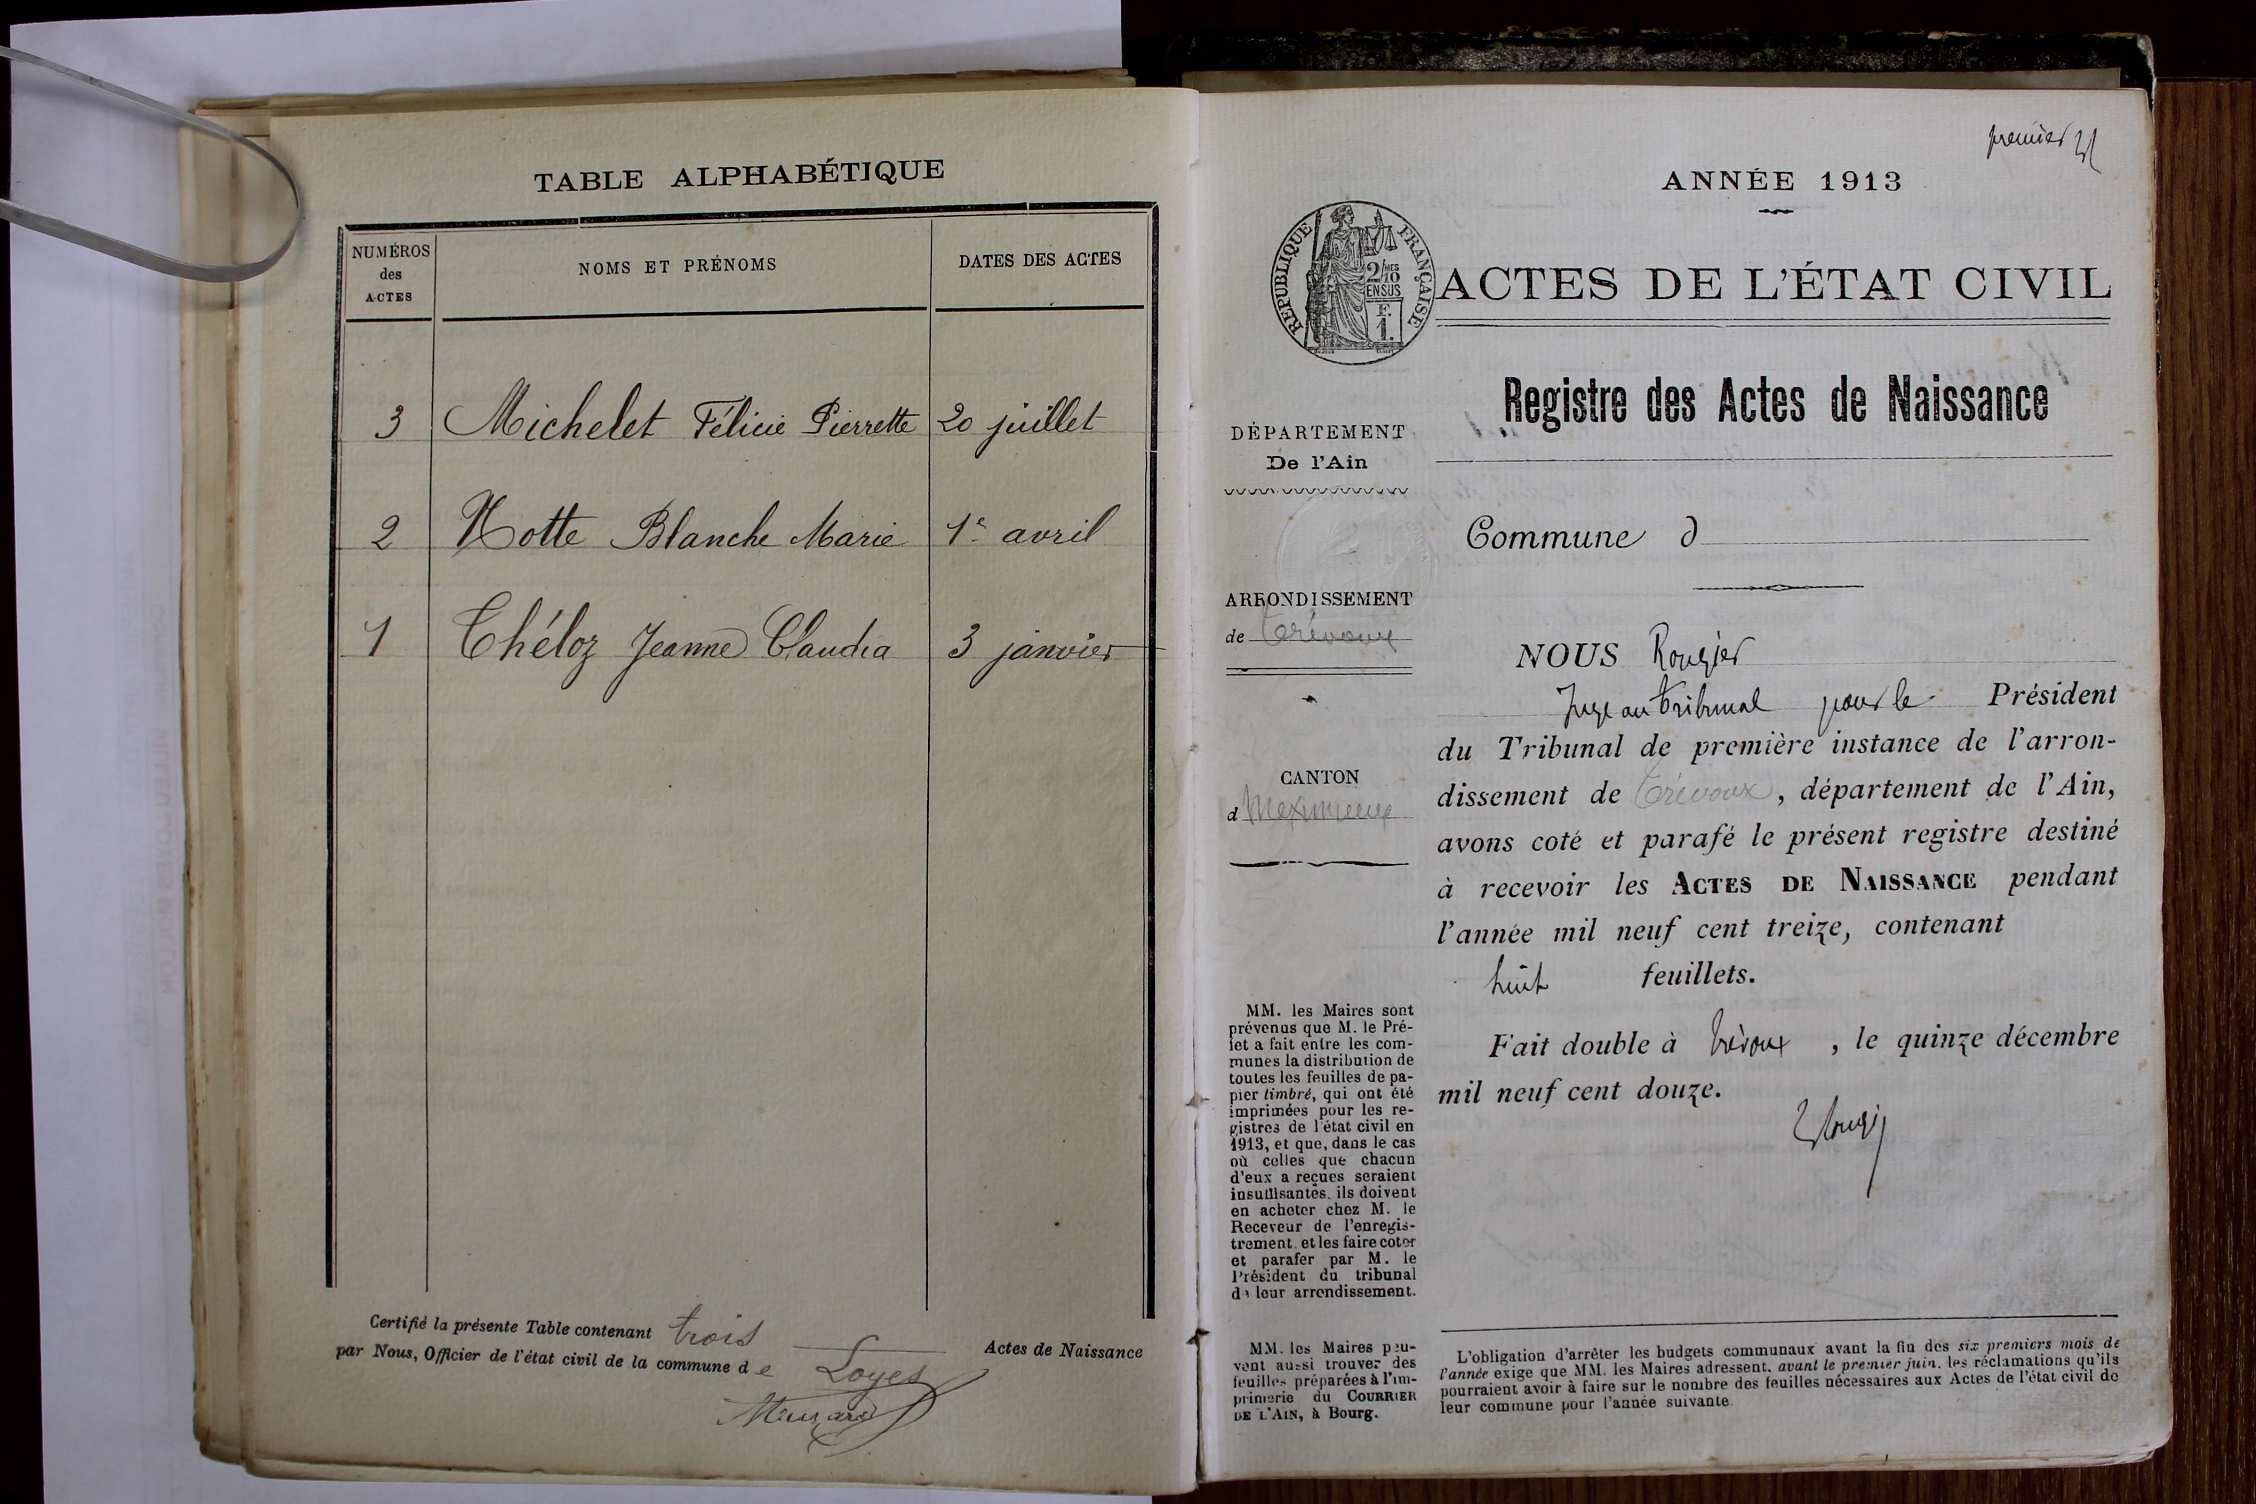 TABLE ALPHABÉTIQUE
NUMÉROS
des
ACTES
NOMS ET PRÉNOMS
DATES DES ACTES
3 Michelet Félicie Pierrette 20 juillet
2 Notte Blanche Marie 1er avril
1 Théloz Jeanne Claudia 3 janvier
Certifié la présente Table contenant trois Actes de Naissance
par Nous, Officier de l'état civil de la commune de Loyes
premier
ANNÉE 1913
RÉPUBLIQUE FRANÇAISE
2/10MES
EN SUS
F.
1.
ACTES DE L'ÉTAT CIVIL
Registre des Actes de Naissance
DÉPARTEMENT
De l'Ain
ARRONDISSEMENT
de Trévoux
CANTON
d Meximieux
MM. les Maires sont
prévenus que M. le Pré-
fet a fait entre les com-
munes la distribution de
toutes les feuilles de pa-
pier timbré, qui ont été
imprimées pour les re-
gistres de l'état civil en
1913, et que, dans le cas
où celles que chacun
d'eux a reçues seraient
insuffisantes, ils doivent
en acheter chez M. le
Receveur de l'enregis-
trement, et les faire coter
et parafer par M. le
Président du tribunal
de leur arrondissement.
MM. les Maires peu-
vent aussi trouver des
feuilles préparées à l'im-
primerie du COURRIER
DE L'AIN, à Bourg.
Commune d
NOUS Rougier
Juge au tribunal pour le Président
du Tribunal de première instance de l'arron-
dissement de Trévoux, département de l'Ain,
avons coté et parafé le présent registre destiné
à recevoir les ACTES DE NAISSANCE pendant
l'année mil neuf cent treize, contenant
huit feuillets.
Fait double à Trévoux, le quinze décembre
mil neuf cent douze.
L'obligation d'arrêter les budgets communaux avant la fin des six premiers mois de
l'année exige que MM. les Maires adressent, avant le premier juin, les réclamations qu'ils
pourraient avoir à faire sur le nombre des feuilles nécessaires aux Actes de l'état civil de
leur commune pour l'année suivante.